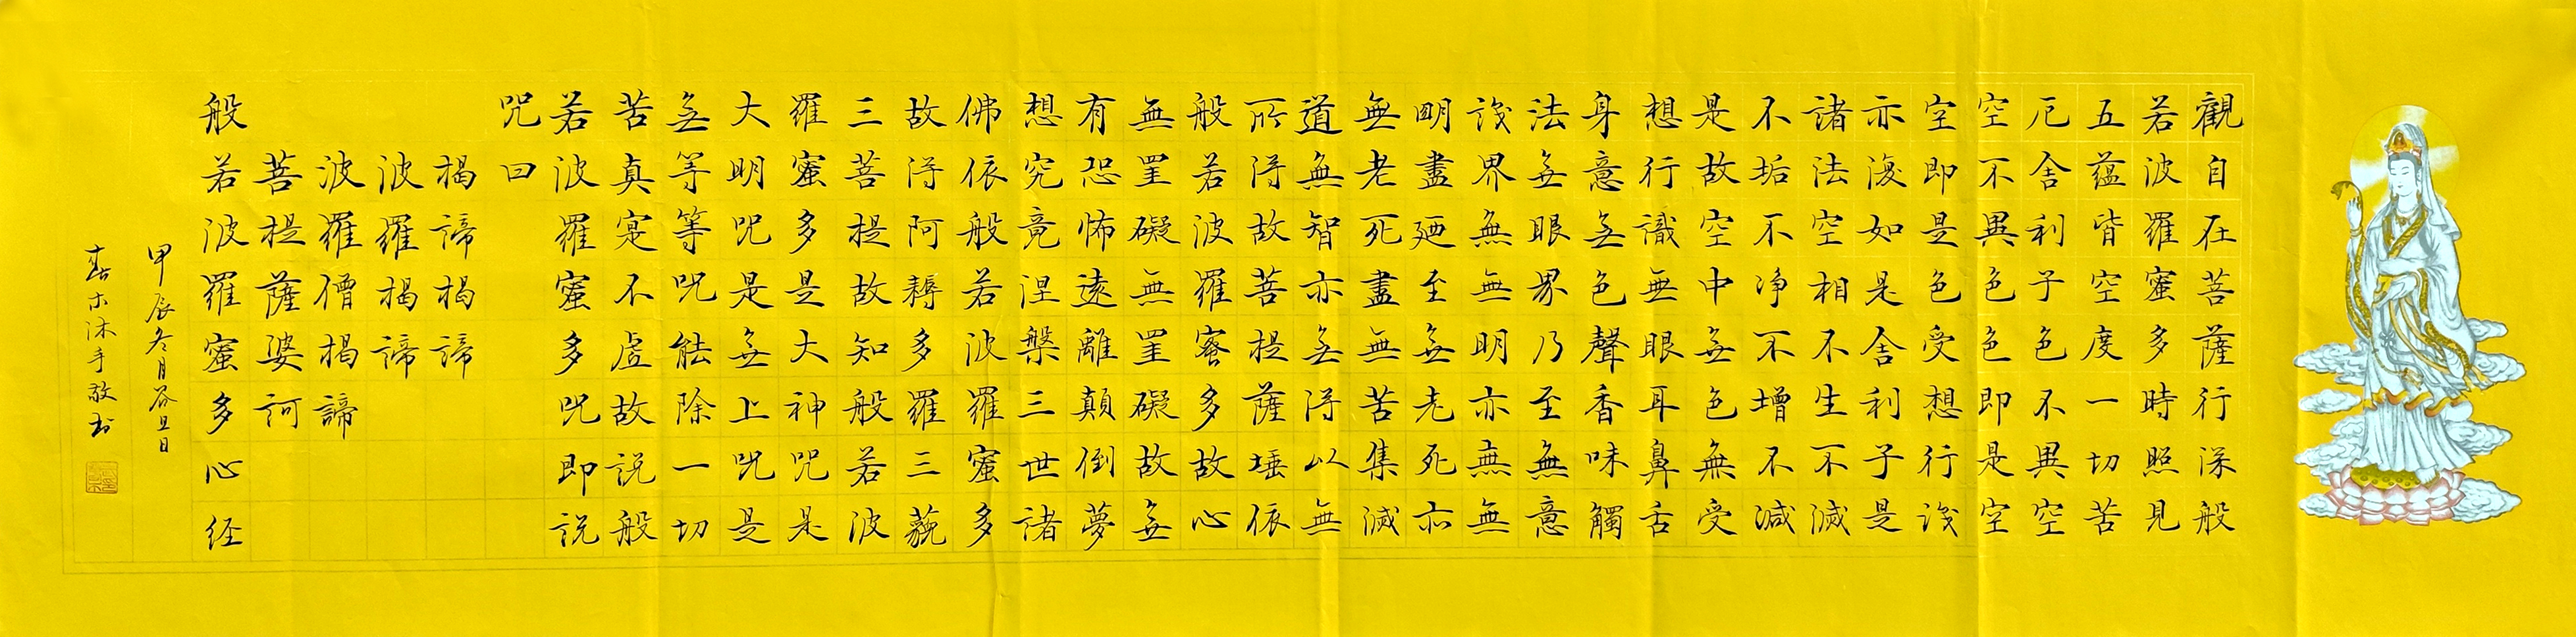 觀自在菩薩行深般
若波羅蜜多時照見
五蘊皆空度一切苦
厄舍利子色不異空
空不異色色即是空
空即是色受想行識
亦復如是舍利子是
諸法空相不生不滅
不垢不净不增不減
是故空中無色無受
想行識無眼耳鼻舌
身意無色聲香味觸
法無眼界乃至無意
識界無無明亦無無
明盡廼至無老死亦
無老死盡無苦集滅
道無智亦無得以無
所得故菩提薩埵依
般若波羅蜜多故心
無罣礙無罣礙故無
有恐怖遠離顛倒夢
想究竟涅槃三世諸
佛依般若波羅蜜多
故得阿耨多羅三藐
三菩提故知般若波
羅蜜多是大神咒是
大明咒是無上咒是
無等等咒能除一切
苦真寔不虛故說般
若波羅蜜多咒即說
咒曰
揭諦揭諦
波羅揭諦
波羅僧揭諦
菩提薩婆訶
般若波羅蜜多心经
甲辰冬月谷旦日
沐手敬书